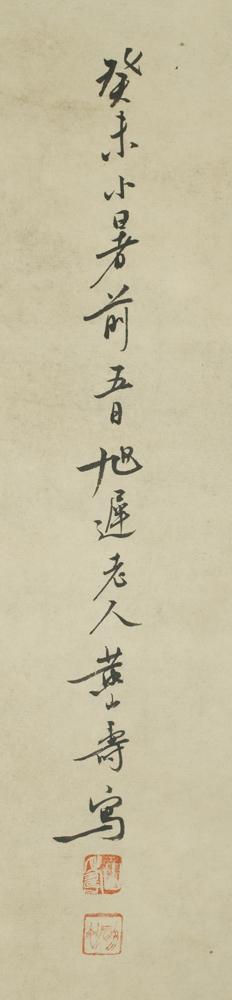 癸未小暑前五日旭遲老人黃山壽寫